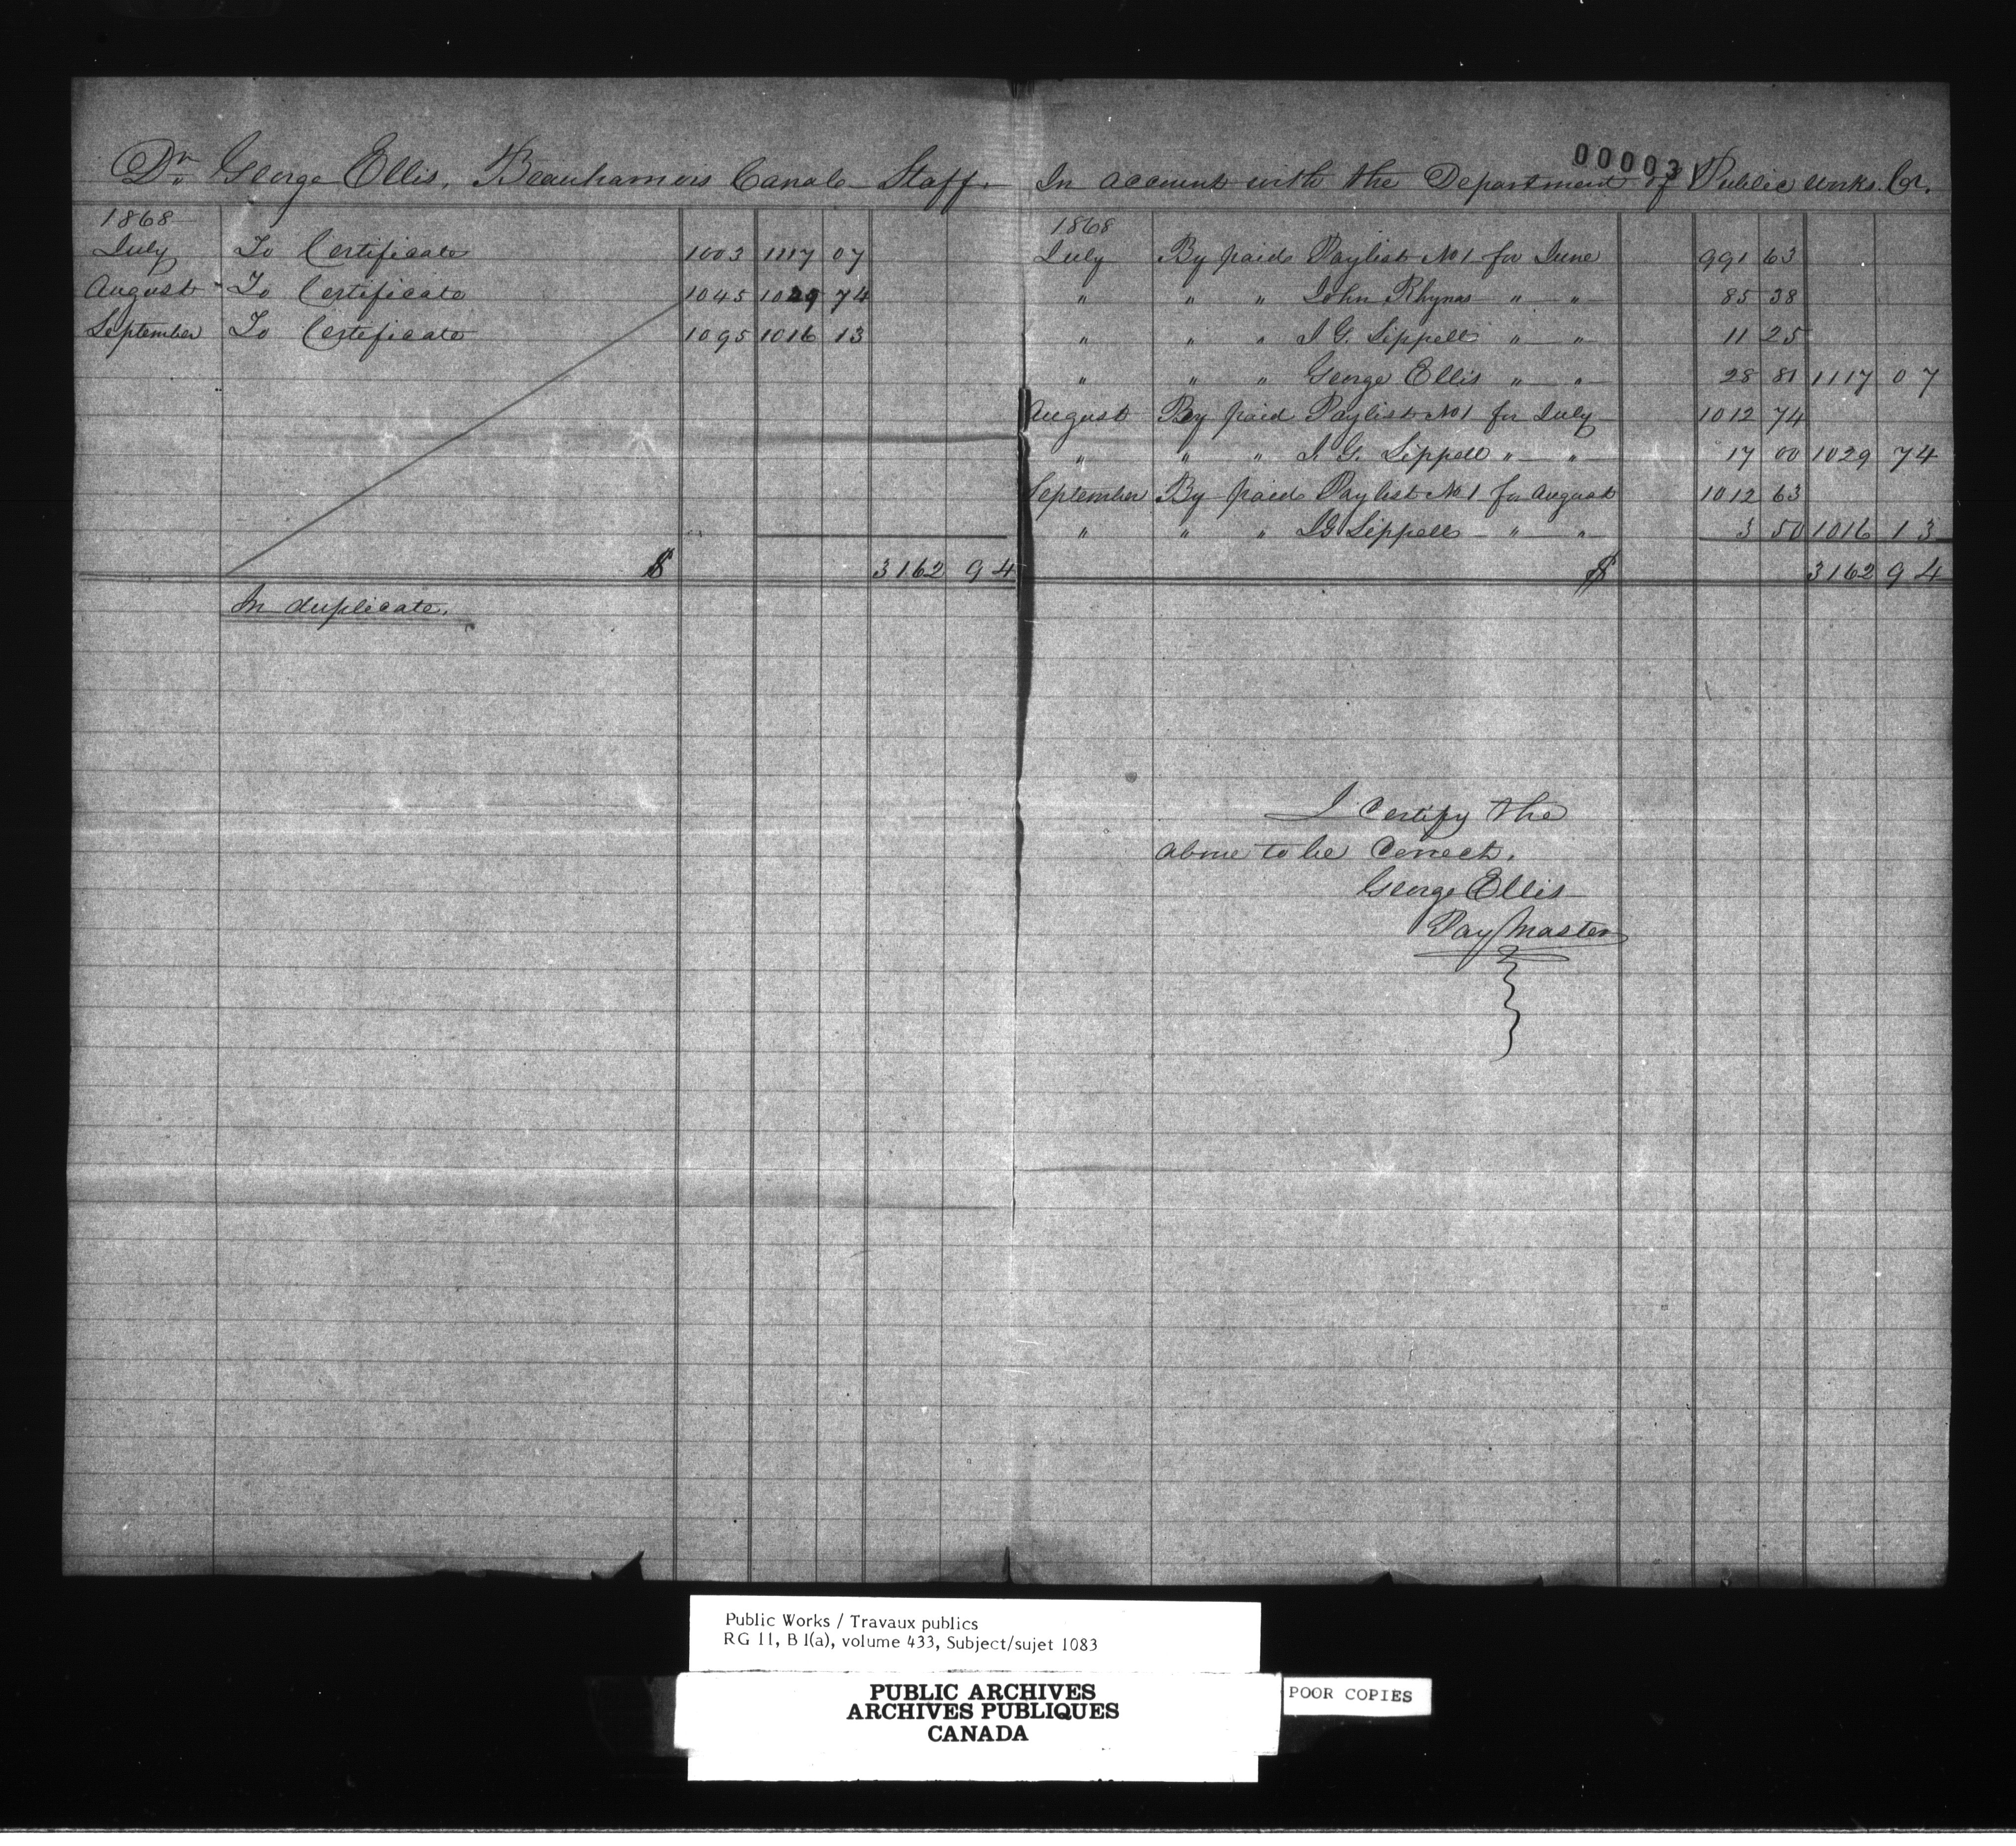 00003
Dr George Ellis, Beauharnois Canal Staff. In account with the Department of Public Works. Cr.
1868
July To Certificate 1003 1117 07
August To Certificate 1045 1029 74
September To Certificate 1095 1016 13
$ 3162 94
In duplicate.
1868
July By paid Paylist No 1 for June 991 63
" " " John Rhynas " " 85 38
" " " I G. Lippell " " 11 25
" " " George Ellis " " 28 81 1117 07
August By paid Paylist No 1 for July 1012 74
" " " I. G. Lippell " " 17 00 1029 74
September By paid Paylist No 1 for August 1012 63
" " " I G Lippell " " 3 50 1016 13
$ 3162 94
I Certify the
above to be Correct.
George Ellis
Pay Master
Public Works / Travaux publics
RG 11, B 1(a), volume 433, Subject/sujet 1083
PUBLIC ARCHIVES
ARCHIVES PUBLIQUES
CANADA
POOR COPIES